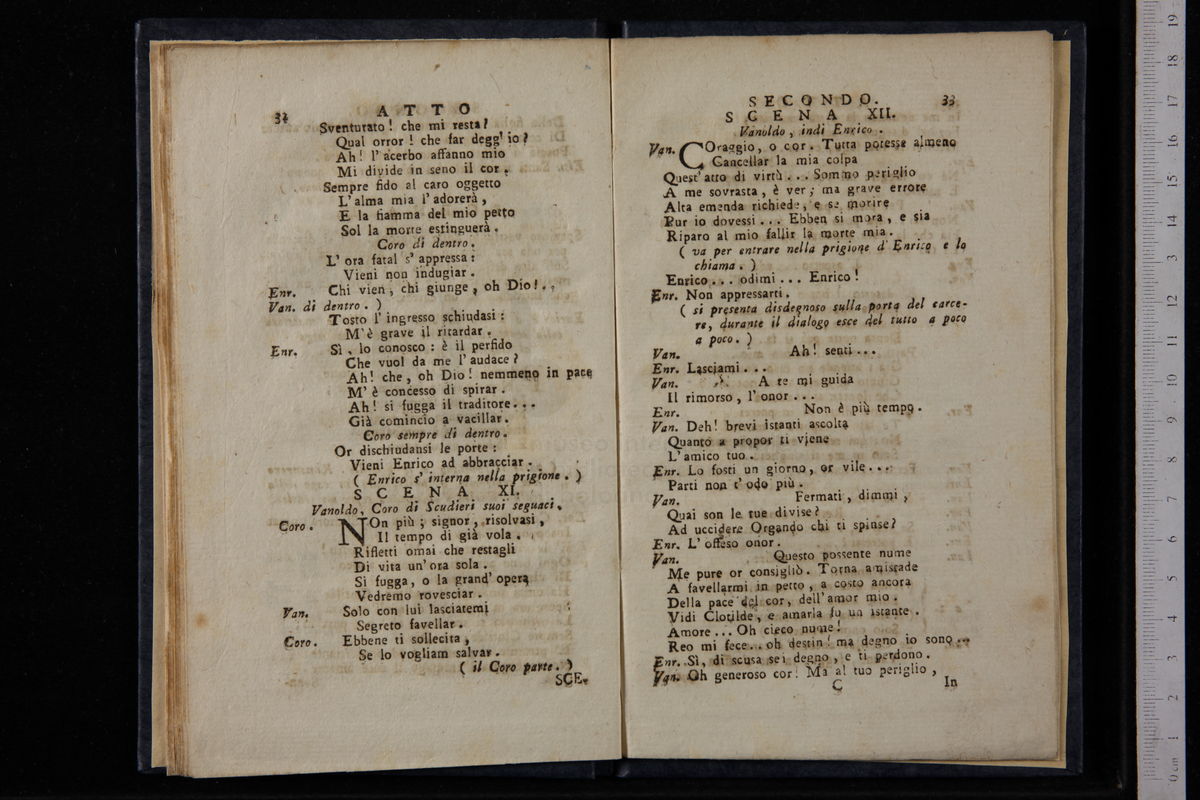 32 ATTO
Sventurato! che mi resta?
Qual orror! che far degg' io?
Ah! l' acerbo affanno mio
Mi divide in seno il cor.
Sempre fido al caro oggetto
L' alma mia l' adorerà,
E la fiamma del mio petto
Sol la morte estinguerà.
Coro di dentro.
L' ora fatal s' appressa:
Vieni non indugiar.
Enr. Chi vien, chi giunge, oh Dio!..
Van. di dentro. )
Tosto l' ingresso schiudasi:
M' è grave il ritardar.
Enr. Sì, lo conosco: è il perfido
Che vuol da me l' audace?
Ah! che, oh Dio! nemmeno in pace
M' è concesso di spirar.
Ah! si fugga il traditore...
Già comincio a vacillar.
Coro sempre di dentro.
Or dischiudansi le porte:
Vieni Enrico ad abbracciar.
( Enrico s' interna nella prigione. )
SCENA XI.
Vanoldo, Coro di Scudieri suoi seguaci.
Coro. NOn più; signor, risolvasi,
Il tempo di già vola.
Rifletti omai che restagli
Di vita un' ora sola.
Si fugga, o la grand' opera
Vedremo rovesciar.
Van. Solo con lui lasciatemi
Segreto favellar.
Coro. Ebbene ti sollecita,
Se lo vogliam salvar.
( il Coro parte. )
SCE-
SECONDO. 33
SCENA XII.
Vanoldo, indi Enrico.
Van. COraggio, o cor. Tutta potesse almeno
Cancellar la mia colpa
Quest' atto di virtù... Sommo periglio
A me sovrasta, è ver; ma grave errore
Alta emenda richiede, e se morire
Pur io dovessi... Ebben si mora, e sia
Riparo al mio fallir la morte mia.
( va per entrare nella prigione d' Enrico e lo
chiama. )
Enrico... odimi... Enrico!
Enr. Non appressarti.
( si presenta disdegnoso sulla porta del carce-
re, durante il dialogo esce del tutto a poco
a poco. )
Van. Ah! senti...
Enr. Lasciami...
Van. A te mi guida
Il rimorso, l' onor...
Enr. Non è più tempo.
Van. Deh! brevi istanti ascolta
Quanto a propor ti viene
L' amico tuo.
Enr. Lo fosti un giorno, or vile...
Parti non t' odo più.
Van. Fermati, dimmi,
Quai son le tue divise?
Ad uccidere Orgando chi ti spinse?
Enr. L' offeso onor.
Van. Questo possente nume
Me pure or consigliò. Torna amistade
A favellarmi in petto, a costo ancora
Della pace del cor, dell' amor mio.
Vidi Clotilde, e amarla fu un istante.
Amore... Oh cieco nume!
Reo mi fece.. oh destin! ma degno io sono...
Enr. Sì, di scusa sei degno, e ti perdono.
Van. Oh generoso cor! Ma al tuo periglio,
C In